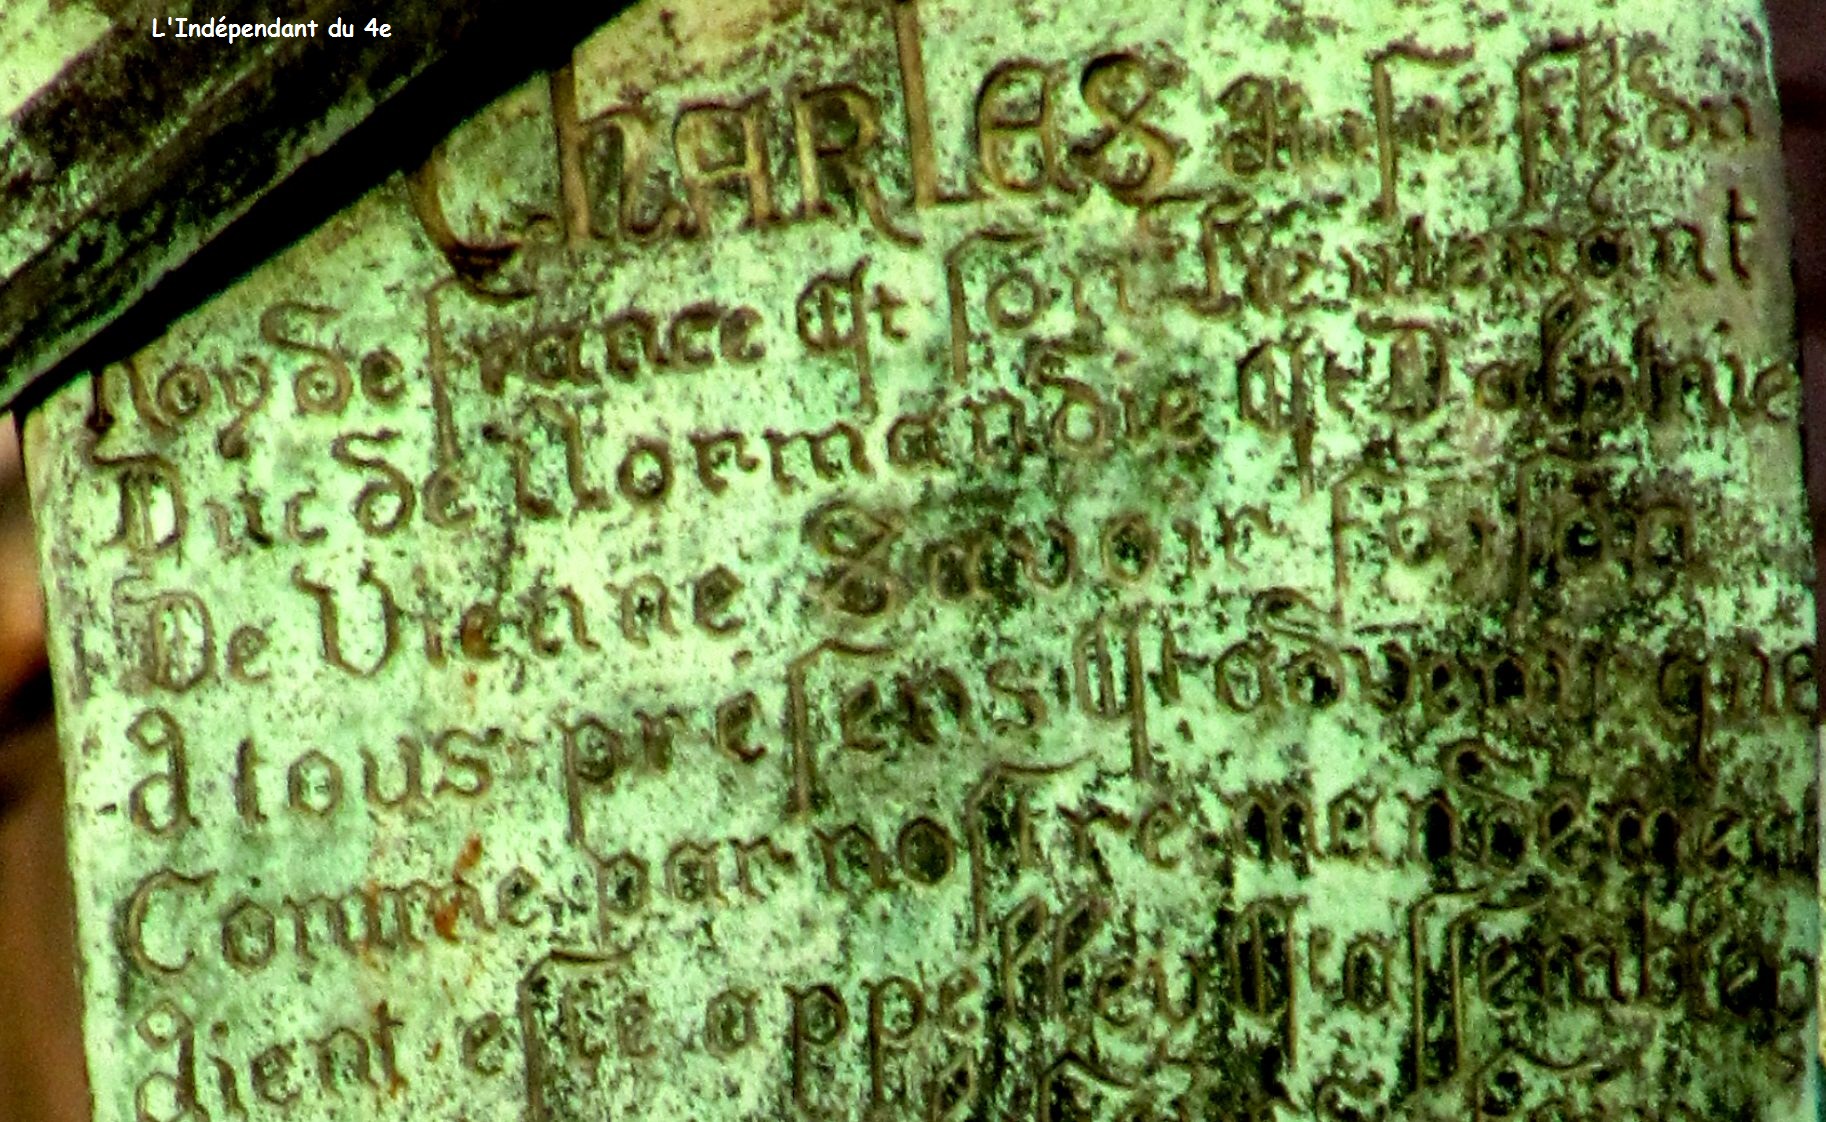 L'Indépendant du 4e
CHARLES du
Roy de france Et son lieutenant
Duc de Normandie Et Dalphine
De Vienne Savoir faison
A tous presens Et advenir que
Comme par nostre mandemen
Aient este appelleu Et assemblé